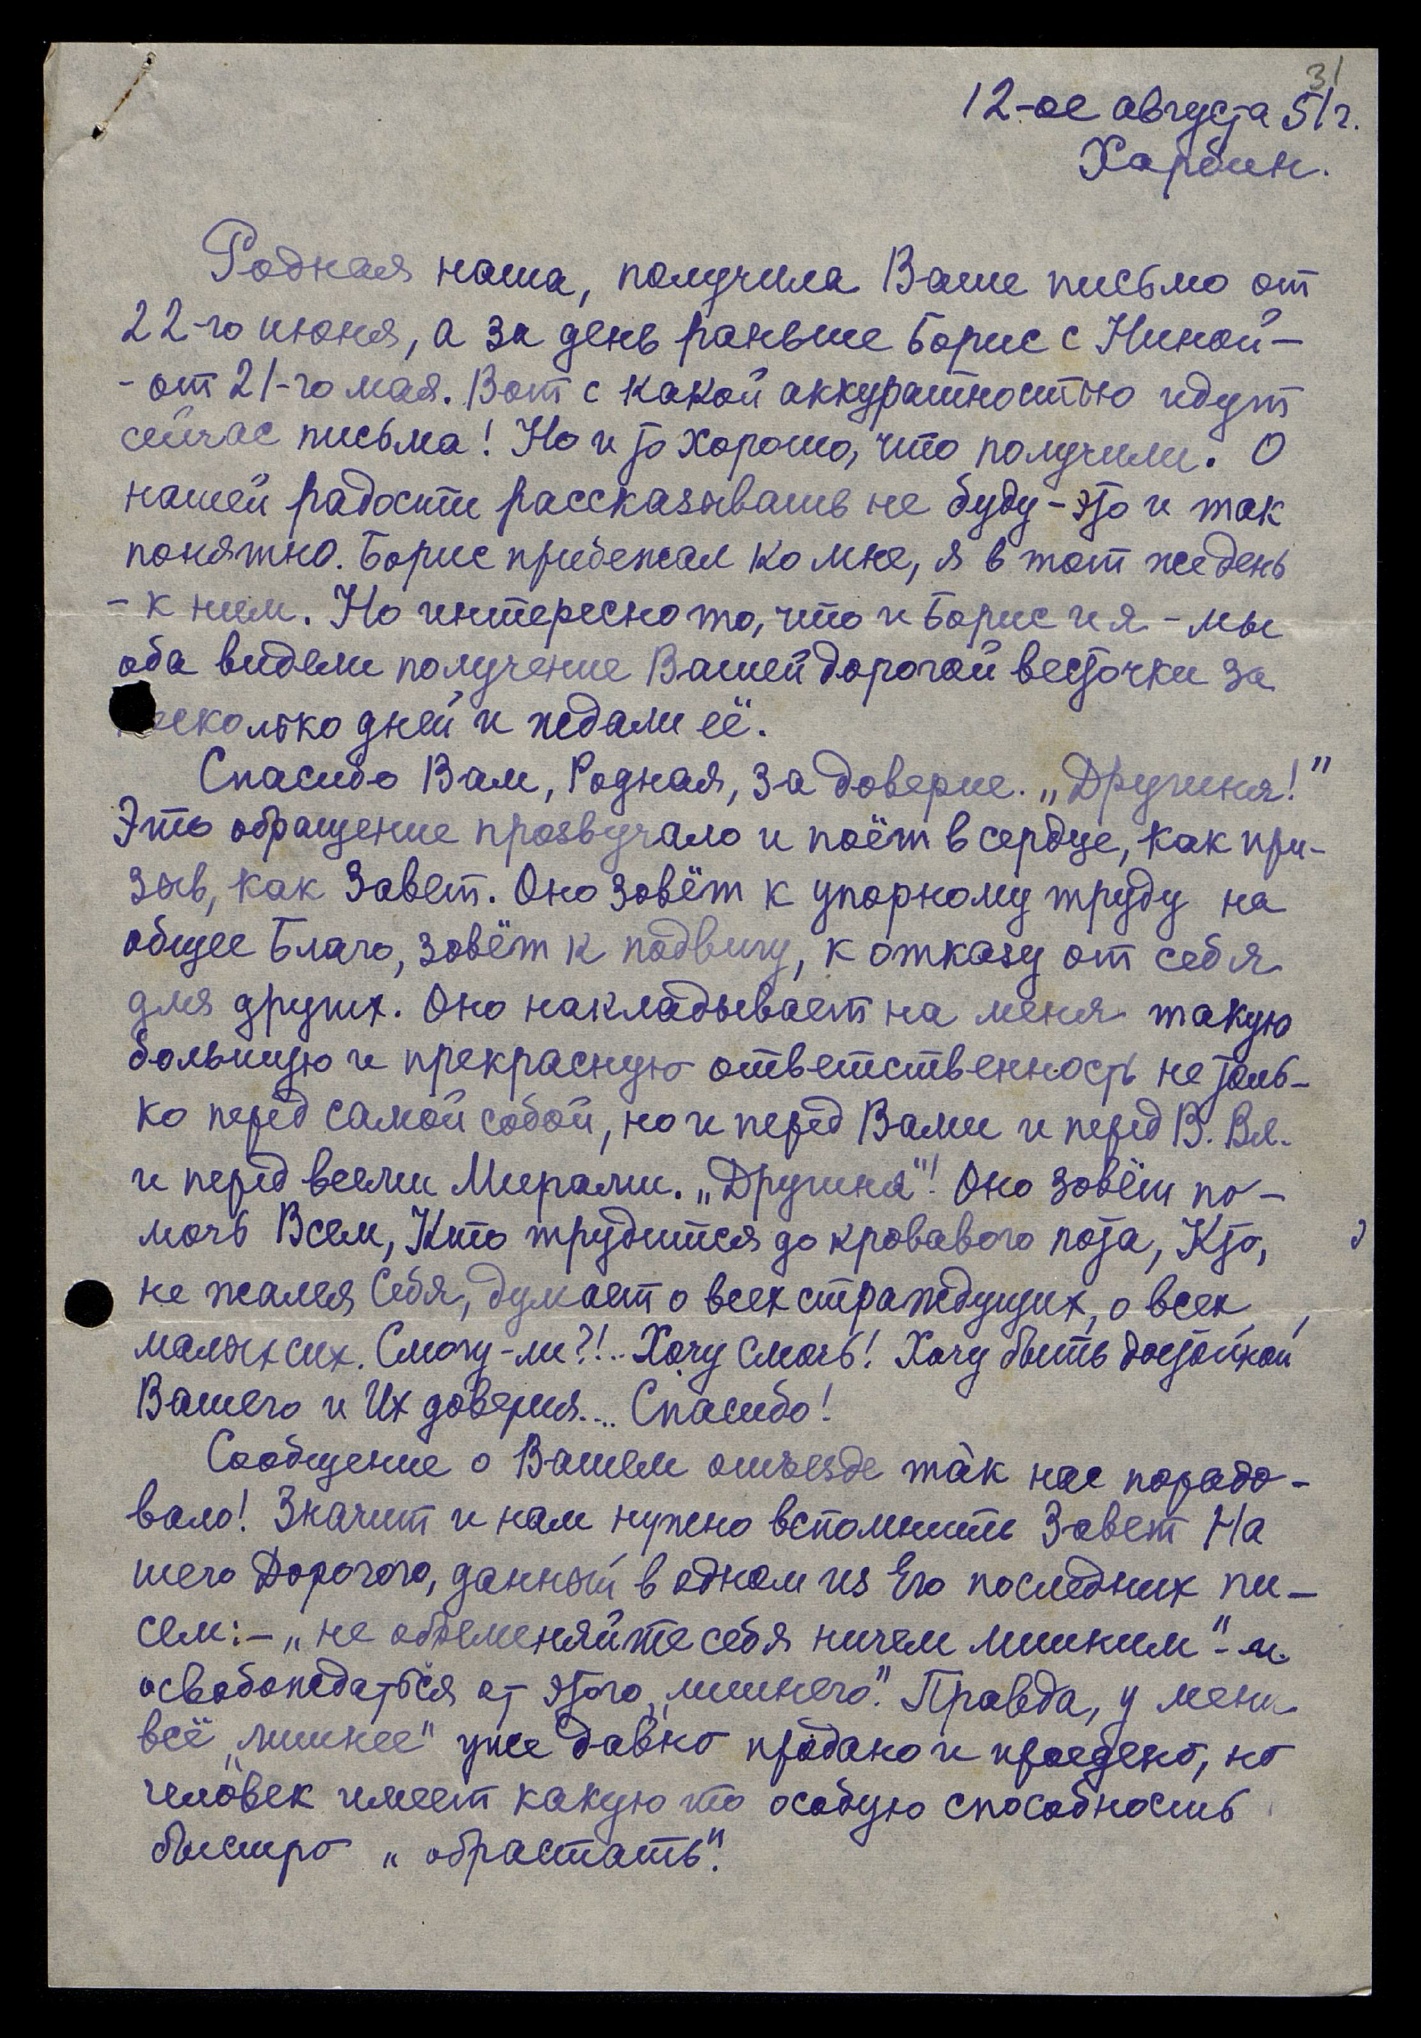 31
12-ое августа 51г.
Харбин.
Родная наша, получила Ваше письмо от
22-го июня, а за день раньше Борис с Ниной -
- от 21-го мая. Вот с какой аккуратностью идут
сейчас письма! Но и то хорошо, что получили. О
нашей радости рассказывать не буду - это и так
понятно. Борис прибежал ко мне, я в тот же день
- к ним. Но интересно то, что и Борис и я - мы
оба видели получение Вашей дорогой весточки за
несколько дней и ждали её.
Спасибо Вам, Родная, за доверие. „Дружина!"
Это обращение прозвучало и поёт в сердце, как при-
зыв, как Завет. Оно зовёт к упорному труду на
общее Благо, зовёт к подвигу, к отказу от себя
для других. Оно накладывает на меня такую
большую и прекрасную ответственность не толь-
ко перед самой собой, но и перед Вами и перед В. Вл.
и перед всеми Мирами. „Дружина"! Оно зовёт по-
мочь Всем, Кто трудится до кровавого пота, Кто,
не жалея Себя, думает о всех страждущих, о всех
малых сих. Смогу-ли?!.. Хочу смочь! Хочу быть достойной
Вашего и Их доверия.... Спасибо!
Сообщение о Вашем отъезде так нас порадо-
вало! Значит и нам нужно вспомнить Завет На
шего Дорогого, данный в одном из Его последних пи-
сем: - „не обременяйте себя ничем лишним" - и
освобождаться от этого „лишнего". Правда, у меня
всё „лишнее" уже давно продано и проедено, но
человек имеет какую то особую способность
быстро „обрастать".